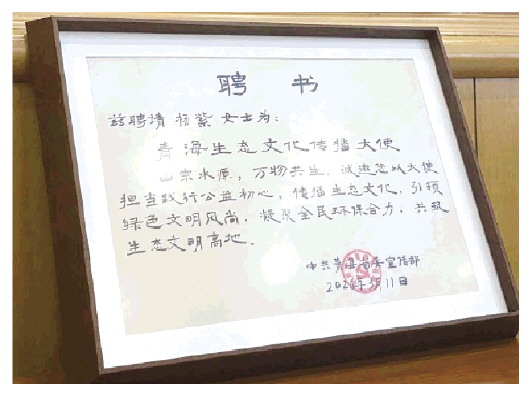 聘 书
兹聘请 杨紫 女士为:
青海生态文化传播大使
山宗水源,万物共生。诚邀您以大使
担当践行公益初心,传播生态文化,引领
绿色文明风尚,凝聚全民环保合力,共筑
生态文明高地。
中共青海省委宣传部
月11日